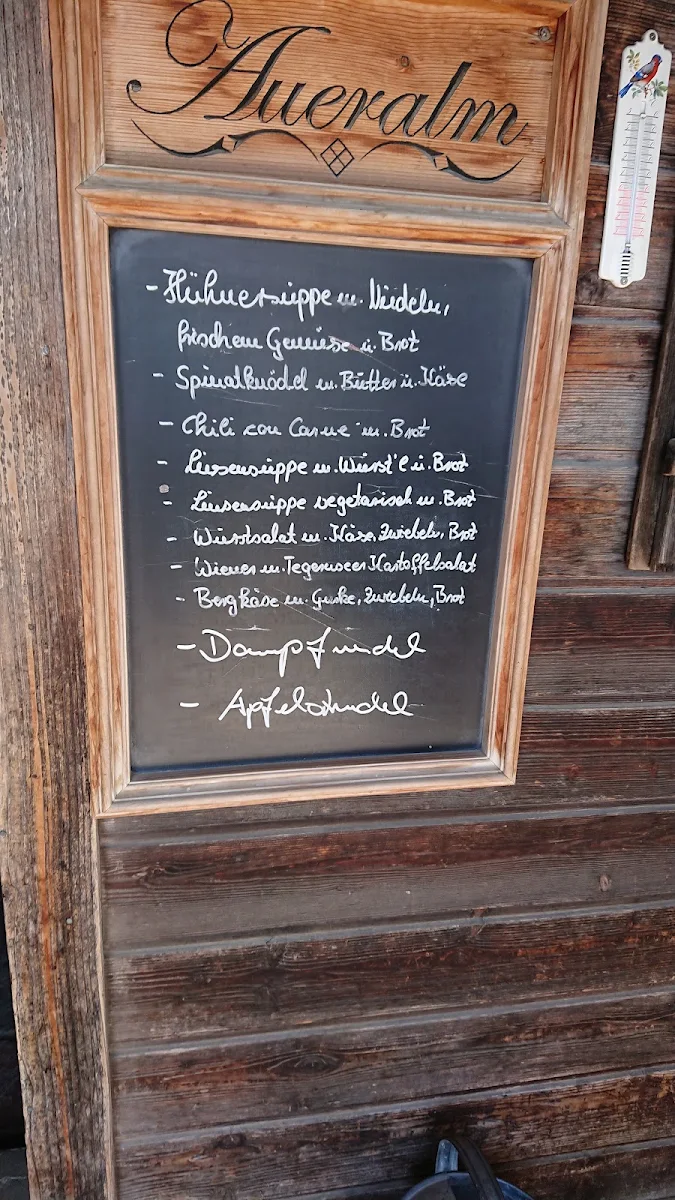 Aueralm
- Hühnersuppe m. Nudeln,
frischem Gemüse u. Brot
- Spinatknödel m. Butter u. Käse
- Chili con Carne m. Brot
- Linsensuppe m. Würst'l u. Brot
- Linsensuppe vegetarisch m. Brot
- Wurstsalat m. Käse, Zwiebeln, Brot
- Wiener m. Tegernseer Kartoffelsalat
- Bergkäse m. Gurke, Zwiebeln, Brot
- Dampfnudel
- Apfelstrudel